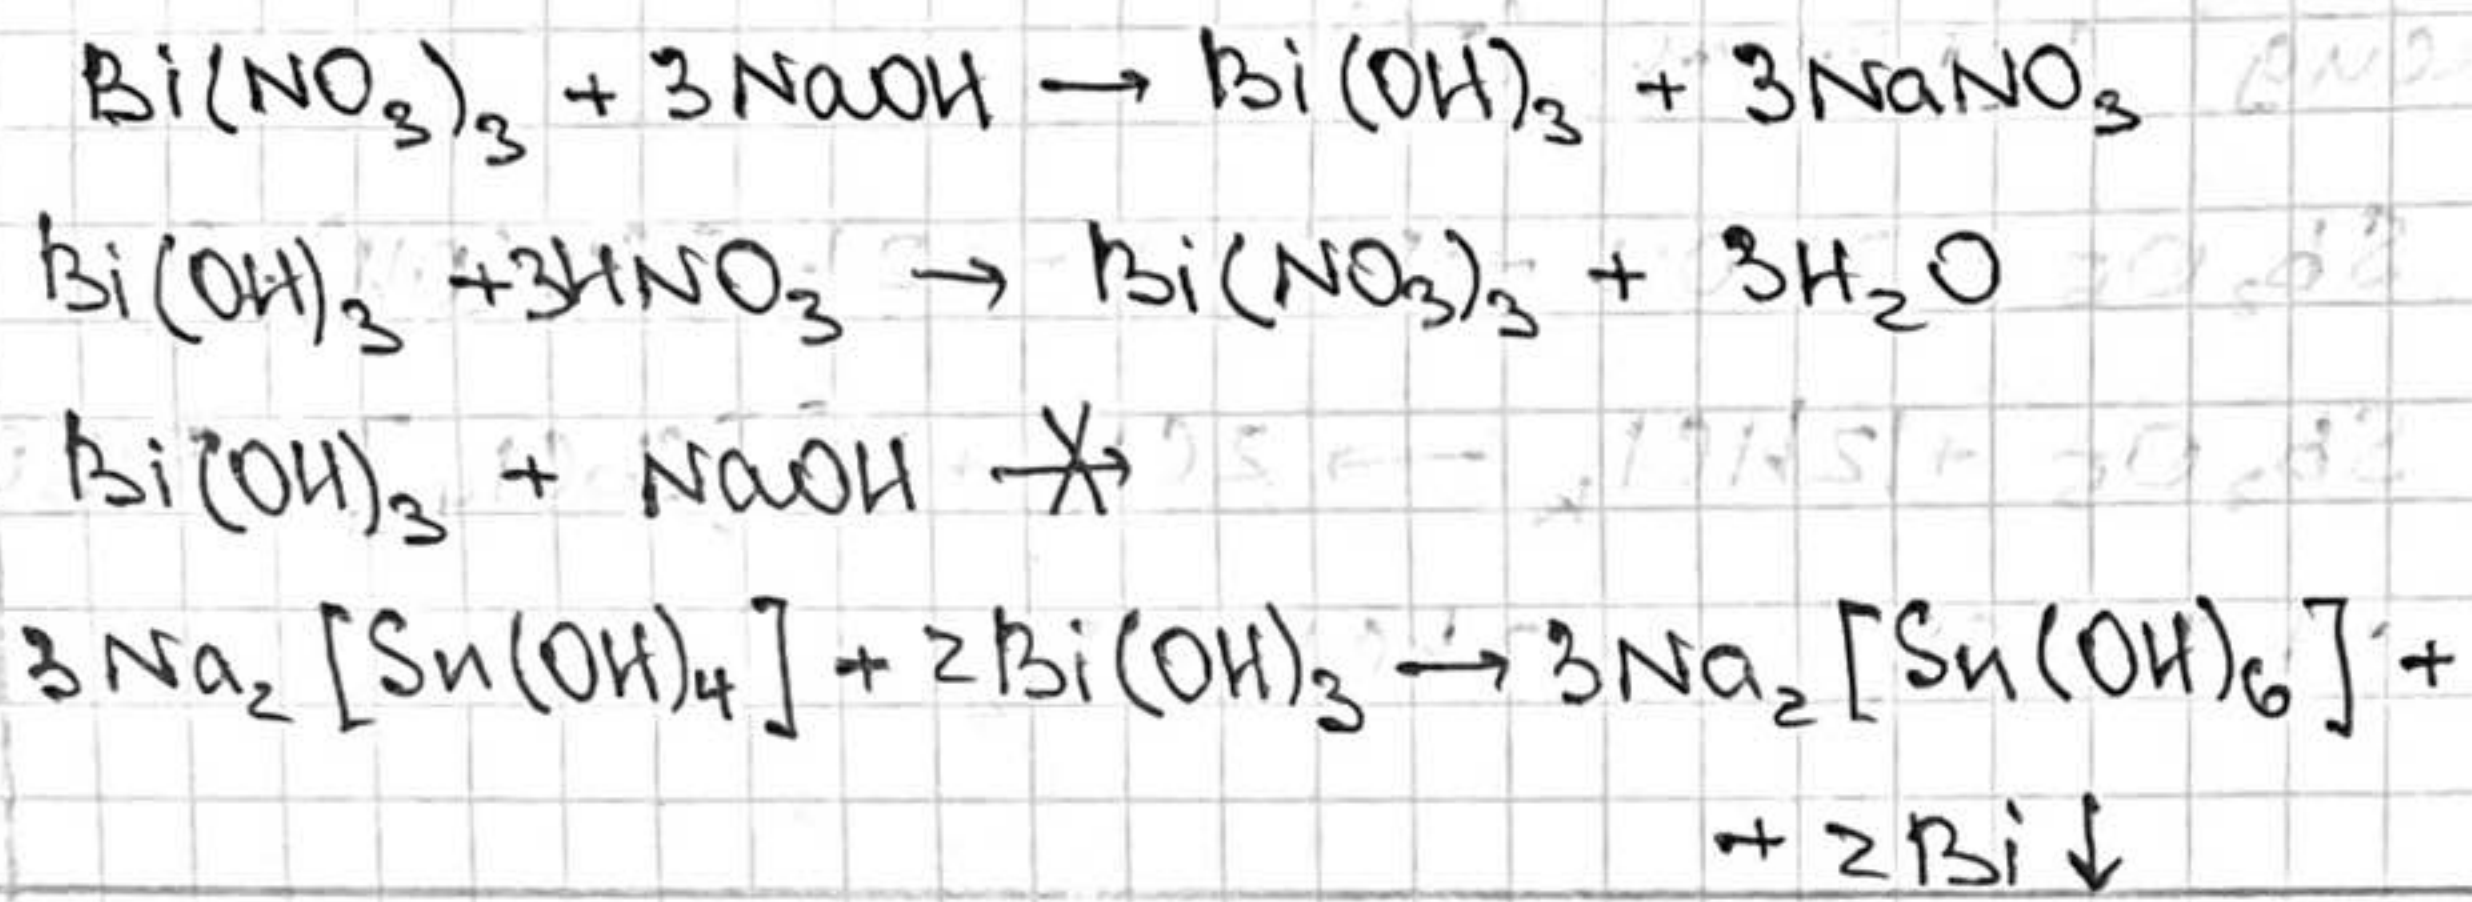 Bi(NO₃)₃ + 3NaOH → Bi(OH)₃ + 3NaNO₃
Bi(OH)₃ + 3HNO₃ → Bi(NO₃)₃ + 3H₂O
Bi(OH)₃ + NaOH ↛
3Na₂[Sn(OH)₄] + 2Bi(OH)₃ → 3Na₂[Sn(OH)₆] +
+ 2Bi↓